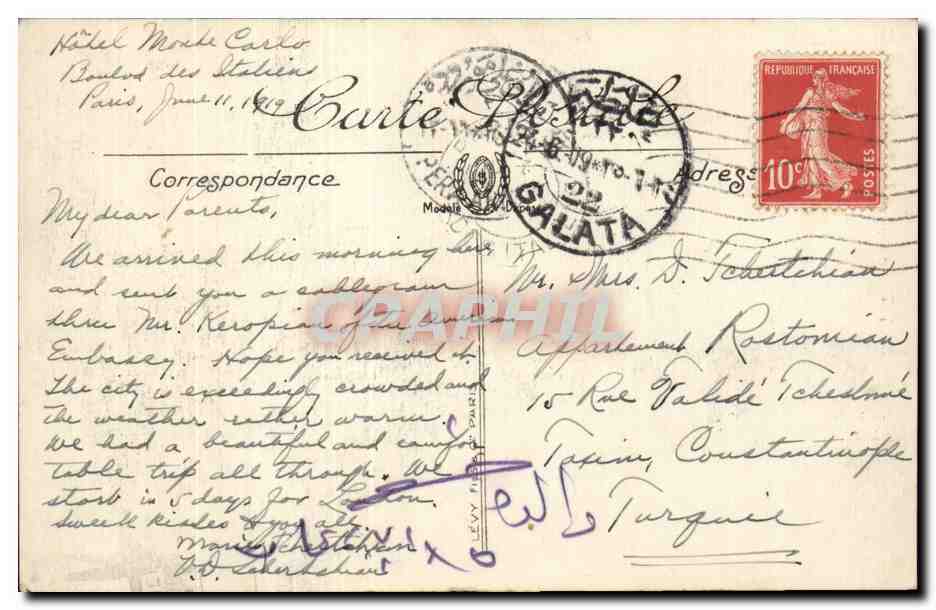 Hôtel Monte Carlo
Boulvd des Italiens
Paris, June 11, 1919
Carte Postale
Correspondance
Adresse
Modèle Déposé
REPUBLIQUE FRANÇAISE
10c
POSTES
22
GALATA
My dear Parents,
We arrived this morning here
and sent you a cablegram
thru Mr. Keropian of the American
Embassy. Hope you received it.
The city is exceedingly crowded and
the weather rather warm.
We had a beautiful and comfor
table trip all through. We
start in 5 days for London.
Sweet kisses to you all.
Marie Tchestchian
V.D.
Mr. & Mrs. D. Tchestchian
Appartement Rostomian
15 Rue Validé Tcheshmé
Taxim, Constantinople
Turquie
LÉVY FILS PARIS
CPAPHIL